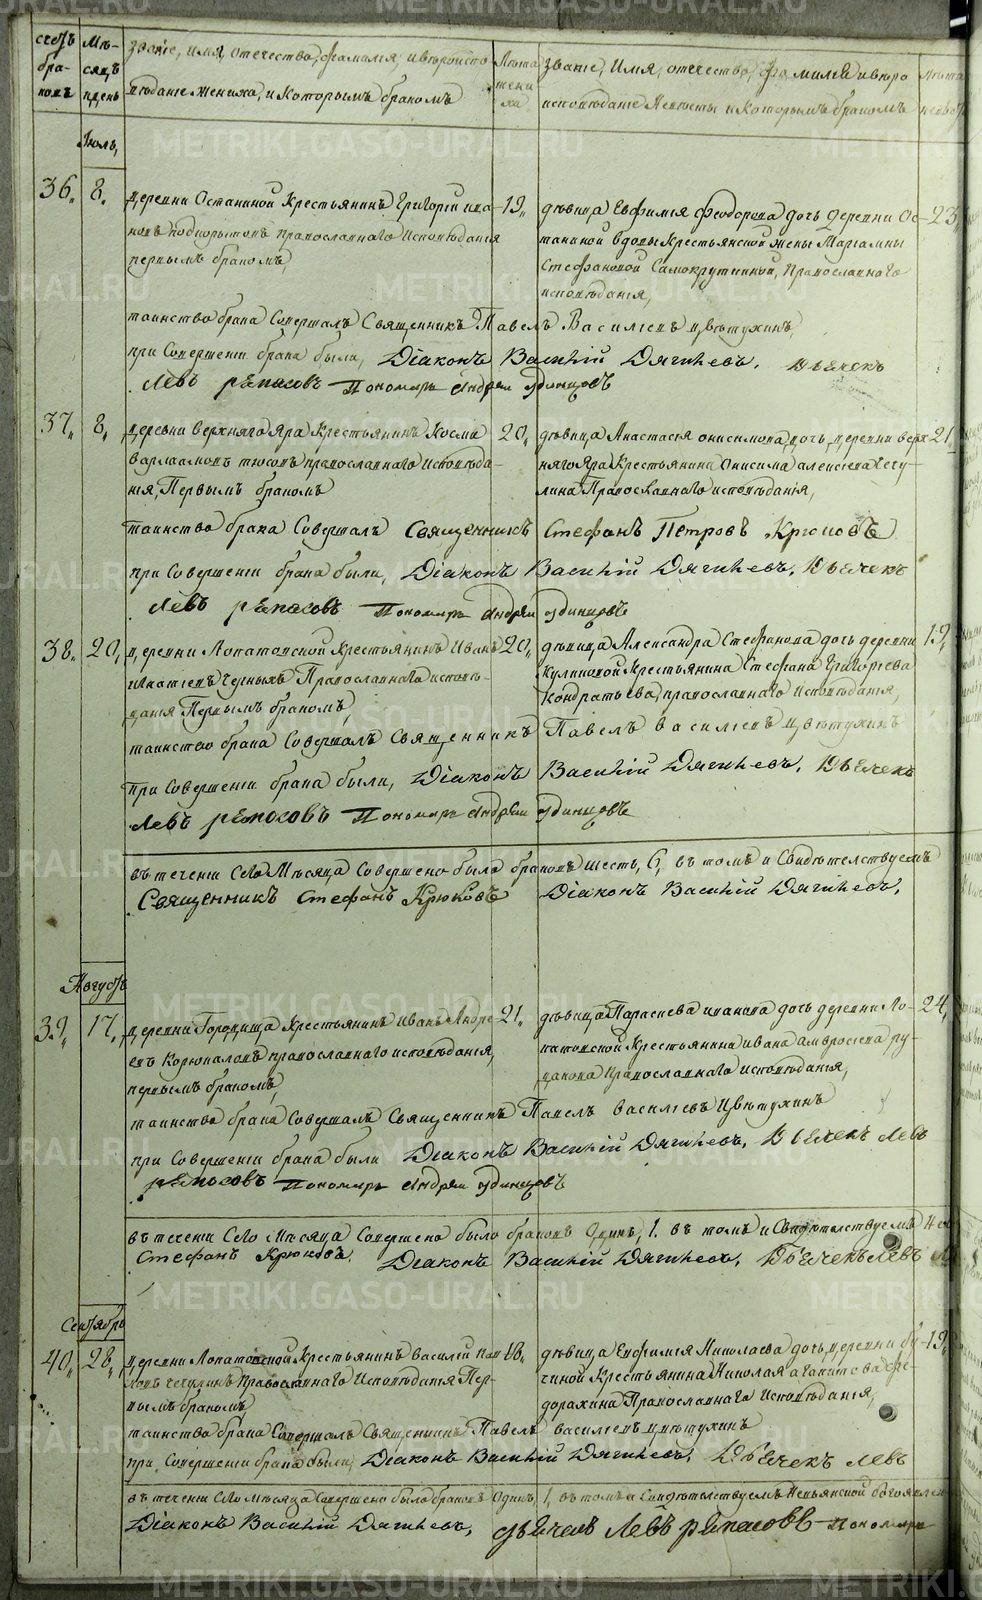 METRIKI.GASO-URAL.RU
счетъ браковъ
Мѣсяцъ и день
званіе, имя, отечество, фамилія, и вѣроисповѣданіе жениха, и которымъ бракомъ
Лѣта жениха
званіе, имя, отечество, фамилія и вѣроисповѣданіе невѣсты и которымъ бракомъ
Лѣта невѣ
Іюль,
36, 8,
деревни Останиной крестьянинъ Григорій Ива- 19,
новъ православнаго исповѣданія
первымъ бракомъ,
дѣвица Евфимія Феодорова дочь деревни Ос- 23,
таниной вдовы крестьянской жены Маріамны
Стефановой Самокрутиной, православнаго
исповѣданія,
таинство брака совершалъ Священникъ Павелъ Василіевъ Цвѣтухинъ,
при совершеніи брака были, Діаконъ Василій Дягилевъ, Дьячекъ
Левъ Рѣпасовъ Пономарь Андрей Одинцовъ
37, 8,
деревни Верхняго Яра крестьянинъ Косма 20,
Варлаамовъ православнаго исповѣда-
нія, Первымъ бракомъ
дѣвица Анастасія Онисимова дочь, деревни Верх- 21
няго Яра крестьянина Онисима Алексіева Чечу-
лина Православнаго исповѣданія,
таинство брака Совершалъ Священникъ Стефанъ Петровъ Крюковъ
при Совершеніи брака были, Діаконъ Василій Дягилевъ, Дьячекъ
Левъ Рѣпасовъ Пономарь Андрей Одинцовъ
38, 20,
деревни Лопатовской крестьянинъ Иванъ 20,
Игнатіевъ Черныхъ Православнаго исповѣ-
данія Первымъ бракомъ,
дѣвица Александра Стефанова дочь деревни 19,
Куликовой крестьянина Стефана Григоріева
Кондратьева, православнаго исповѣданія,
таинство брака Совершалъ Священникъ Павелъ Василіевъ Цвѣтухинъ
при Совершеніи брака были, Діаконъ Василій Дягилевъ, Дьячекъ
Левъ Рѣпасовъ Пономарь Андрей Одинцовъ
въ теченіи Сего Мѣсяца Совершено было браковъ шесть, 6, въ томъ и Свидѣтелствуемъ
Священникъ Стефанъ Крюковъ Діаконъ Василій Дягилевъ,
Августъ
39, 17,
деревни Городища крестьянинъ Иванъ Андре- 21,
евъ Корюкаловъ православнаго исповѣданія,
первымъ бракомъ,
дѣвица Параскева Иванова дочь деревни Ло- 24,
патовской крестьянина Ивана Амвросіева Ру-
дакова Православнаго исповѣданія,
таинство брака Совершалъ Священникъ Павелъ Василіевъ Цвѣтухинъ
при Совершеніи брака были Діаконъ Василій Дягилевъ, Дьячекъ Левъ
Рѣпасовъ Пономарь Андрей Одинцовъ
въ теченіи Сего Мѣсяца Совершено было браковъ Одинъ, 1. въ томъ и Свидѣтелствуемъ
Стефанъ Крюковъ. Діаконъ Василій Дягилевъ, Дьячекъ Левъ
Сентябрь
40, 28,
деревни Лопатовской крестьянинъ Василій 18,
Чечулинъ Православнаго Исповѣданія Пер-
вымъ бракомъ
дѣвица Евфимія Николаева дочь, деревни Бу- 19,
чиной крестьянина Николая Агапитова Фе-
дорахина Православнаго Исповѣданія,
таинство брака Совершалъ Священникъ Павелъ Василіевъ Цвѣтухинъ
при Совершеніи брака были, Діаконъ Василій Дягилевъ, Дьячекъ Левъ
въ теченіи Сего мѣсяца Совершено было браковъ Одинъ, 1, въ томъ и Свидѣтелствуемъ Невьянской Богоявлен
Діаконъ Василій Дягилевъ, Дьячекъ Левъ Рѣпасовъ Пономарь